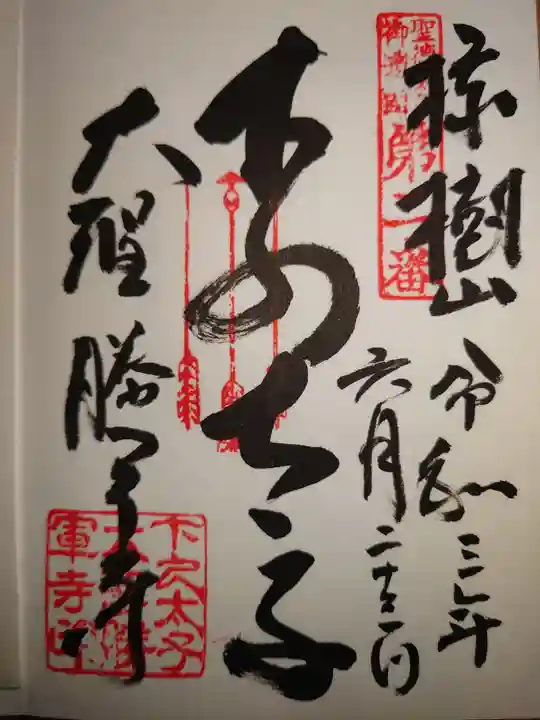 聖徳太子
御遺跡
第二番
椋樹山
令和三年
六月二十三日
下の太子
大聖勝軍寺
下之太子
大聖勝
軍寺印